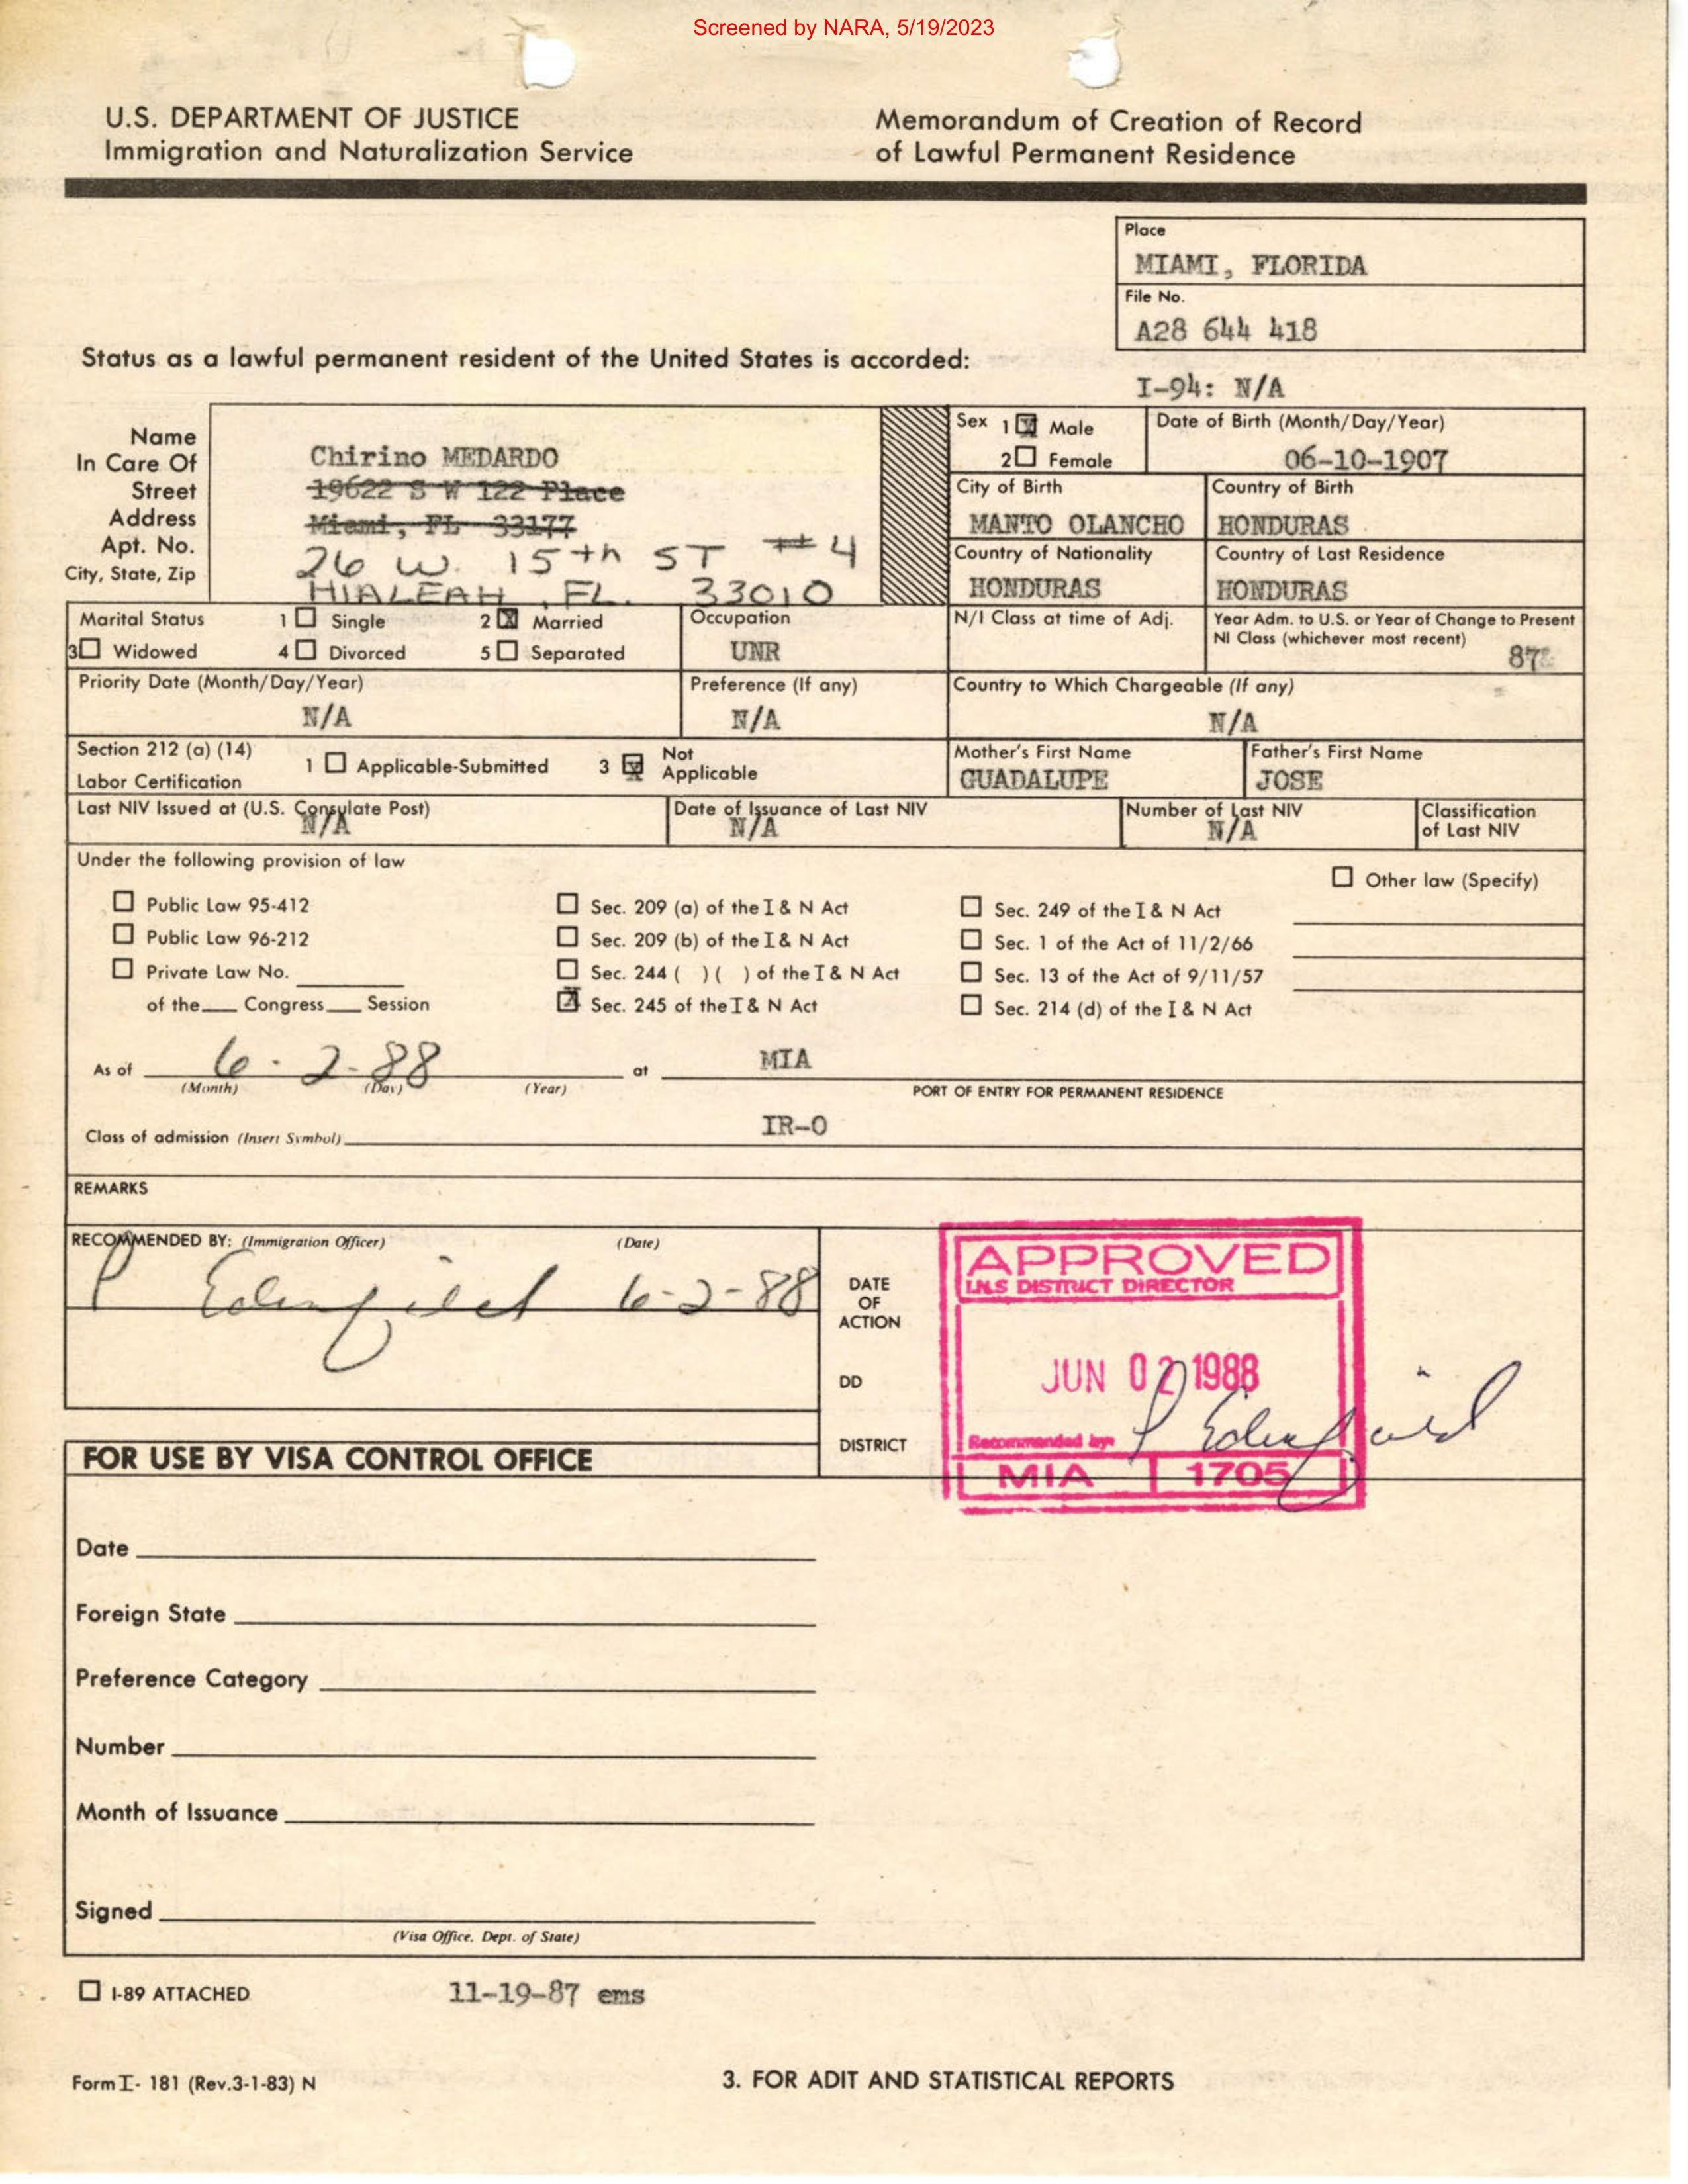 Screened by NARA, 5/19/2023
U.S. DEPARTMENT OF JUSTICE
Immigration and Naturalization Service
Memorandum of Creation of Record
of Lawful Permanent Residence
Place
MIAMI, FLORIDA
File No.
A28 644 418
Status as a lawful permanent resident of the United States is accorded:
I-94: N/A
Name
In Care Of
Street
Address
Apt. No.
City, State, Zip
Chirino MEDARDO
19622 S W 122 Place
Miami, FL 33177
26 W. 15th ST #4
HIALEAH, FL. 33010
Sex 1 Male
2 Female
Date of Birth (Month/Day/Year)
06-10-1907
City of Birth
MANTO OLANCHO
Country of Birth
HONDURAS
Country of Nationality
HONDURAS
Country of Last Residence
HONDURAS
Marital Status 1 Single 2 Married
3 Widowed 4 Divorced 5 Separated
Occupation
UNR
N/I Class at time of Adj.
Year Adm. to U.S. or Year of Change to Present
NI Class (whichever most recent)
87
Priority Date (Month/Day/Year)
N/A
Preference (If any)
N/A
Country to Which Chargeable (If any)
N/A
Section 212 (a) (14)
Labor Certification
1 Applicable-Submitted 3 Not
Applicable
Mother's First Name
GUADALUPE
Father's First Name
JOSE
Last NIV Issued at (U.S. Consulate Post)
N/A
Date of Issuance of Last NIV
N/A
Number of Last NIV
N/A
Classification
of Last NIV
Under the following provision of law
Other law (Specify)
Public Law 95-412
Public Law 96-212
Private Law No.
of the Congress Session
Sec. 209 (a) of the I & N Act
Sec. 209 (b) of the I & N Act
Sec. 244 ( ) ( ) of the I & N Act
Sec. 245 of the I & N Act
Sec. 249 of the I & N Act
Sec. 1 of the Act of 11/2/66
Sec. 13 of the Act of 9/11/57
Sec. 214 (d) of the I & N Act
As of 6-2-88 at MIA
(Month) (Day) (Year) PORT OF ENTRY FOR PERMANENT RESIDENCE
Class of admission (Insert Symbol) IR-0
REMARKS
RECOMMENDED BY: (Immigration Officer) (Date)
P Edenfield 6-2-88
DATE
OF
ACTION
DD
DISTRICT
APPROVED
I.N.S DISTRICT DIRECTOR
JUN 02 1988
Recommended by: P Edenfield
MIA 1705
FOR USE BY VISA CONTROL OFFICE
Date
Foreign State
Preference Category
Number
Month of Issuance
Signed
(Visa Office, Dept. of State)
I-89 ATTACHED 11-19-87 ems
Form I-181 (Rev.3-1-83) N
3. FOR ADIT AND STATISTICAL REPORTS